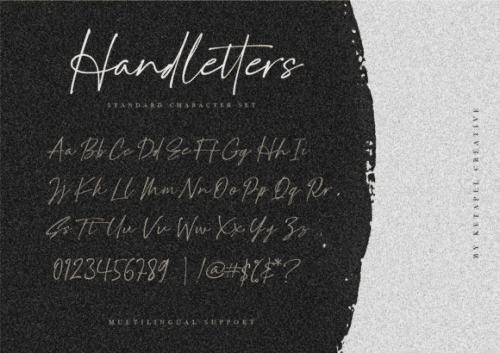 Handletters
STANDARD CHARACTER SET
Aa Bb Cc Dd Ee Ff Gg Hh Ii
Jj Kk Ll Mm Nn Oo Pp Qq Rr
Ss Tt Uu Vv Ww Xx Yy Zz
0123456789 | /@#$%&*?
MULTILINGUAL SUPPORT
BY KETAPEL CREATIVE